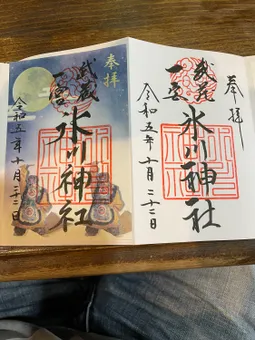 奉拝
武蔵
一宮
氷川神社
令和五年十月二十二日
奉拝
武蔵
一宮
氷川神社
令和五年十月二十二日